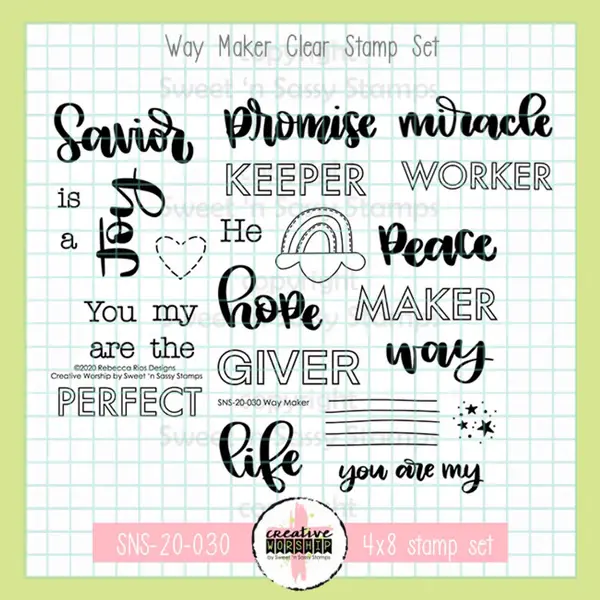 Way Maker Clear Stamp Set
copyright
Sweet 'n Sassy Stamps
Savior
is
a
Joy
You my
are the
©2020 Rebecca Rios Designs
Creative Worship by Sweet 'n Sassy Stamps
PERFECT
promise
KEEPER
Sweet 'n Sassy Stamps
He
hope
GIVER
SNS-20-030 Way Maker
life
miracle
WORKER
Peace
MAKER
way
you are my
copyright
Sweet 'n Sassy Stamps
copyright
Sweet 'n Sassy Stamps
copyright
SNS-20-030
creative
WORSHIP
by Sweet 'n Sassy Stamps
4x8 stamp set